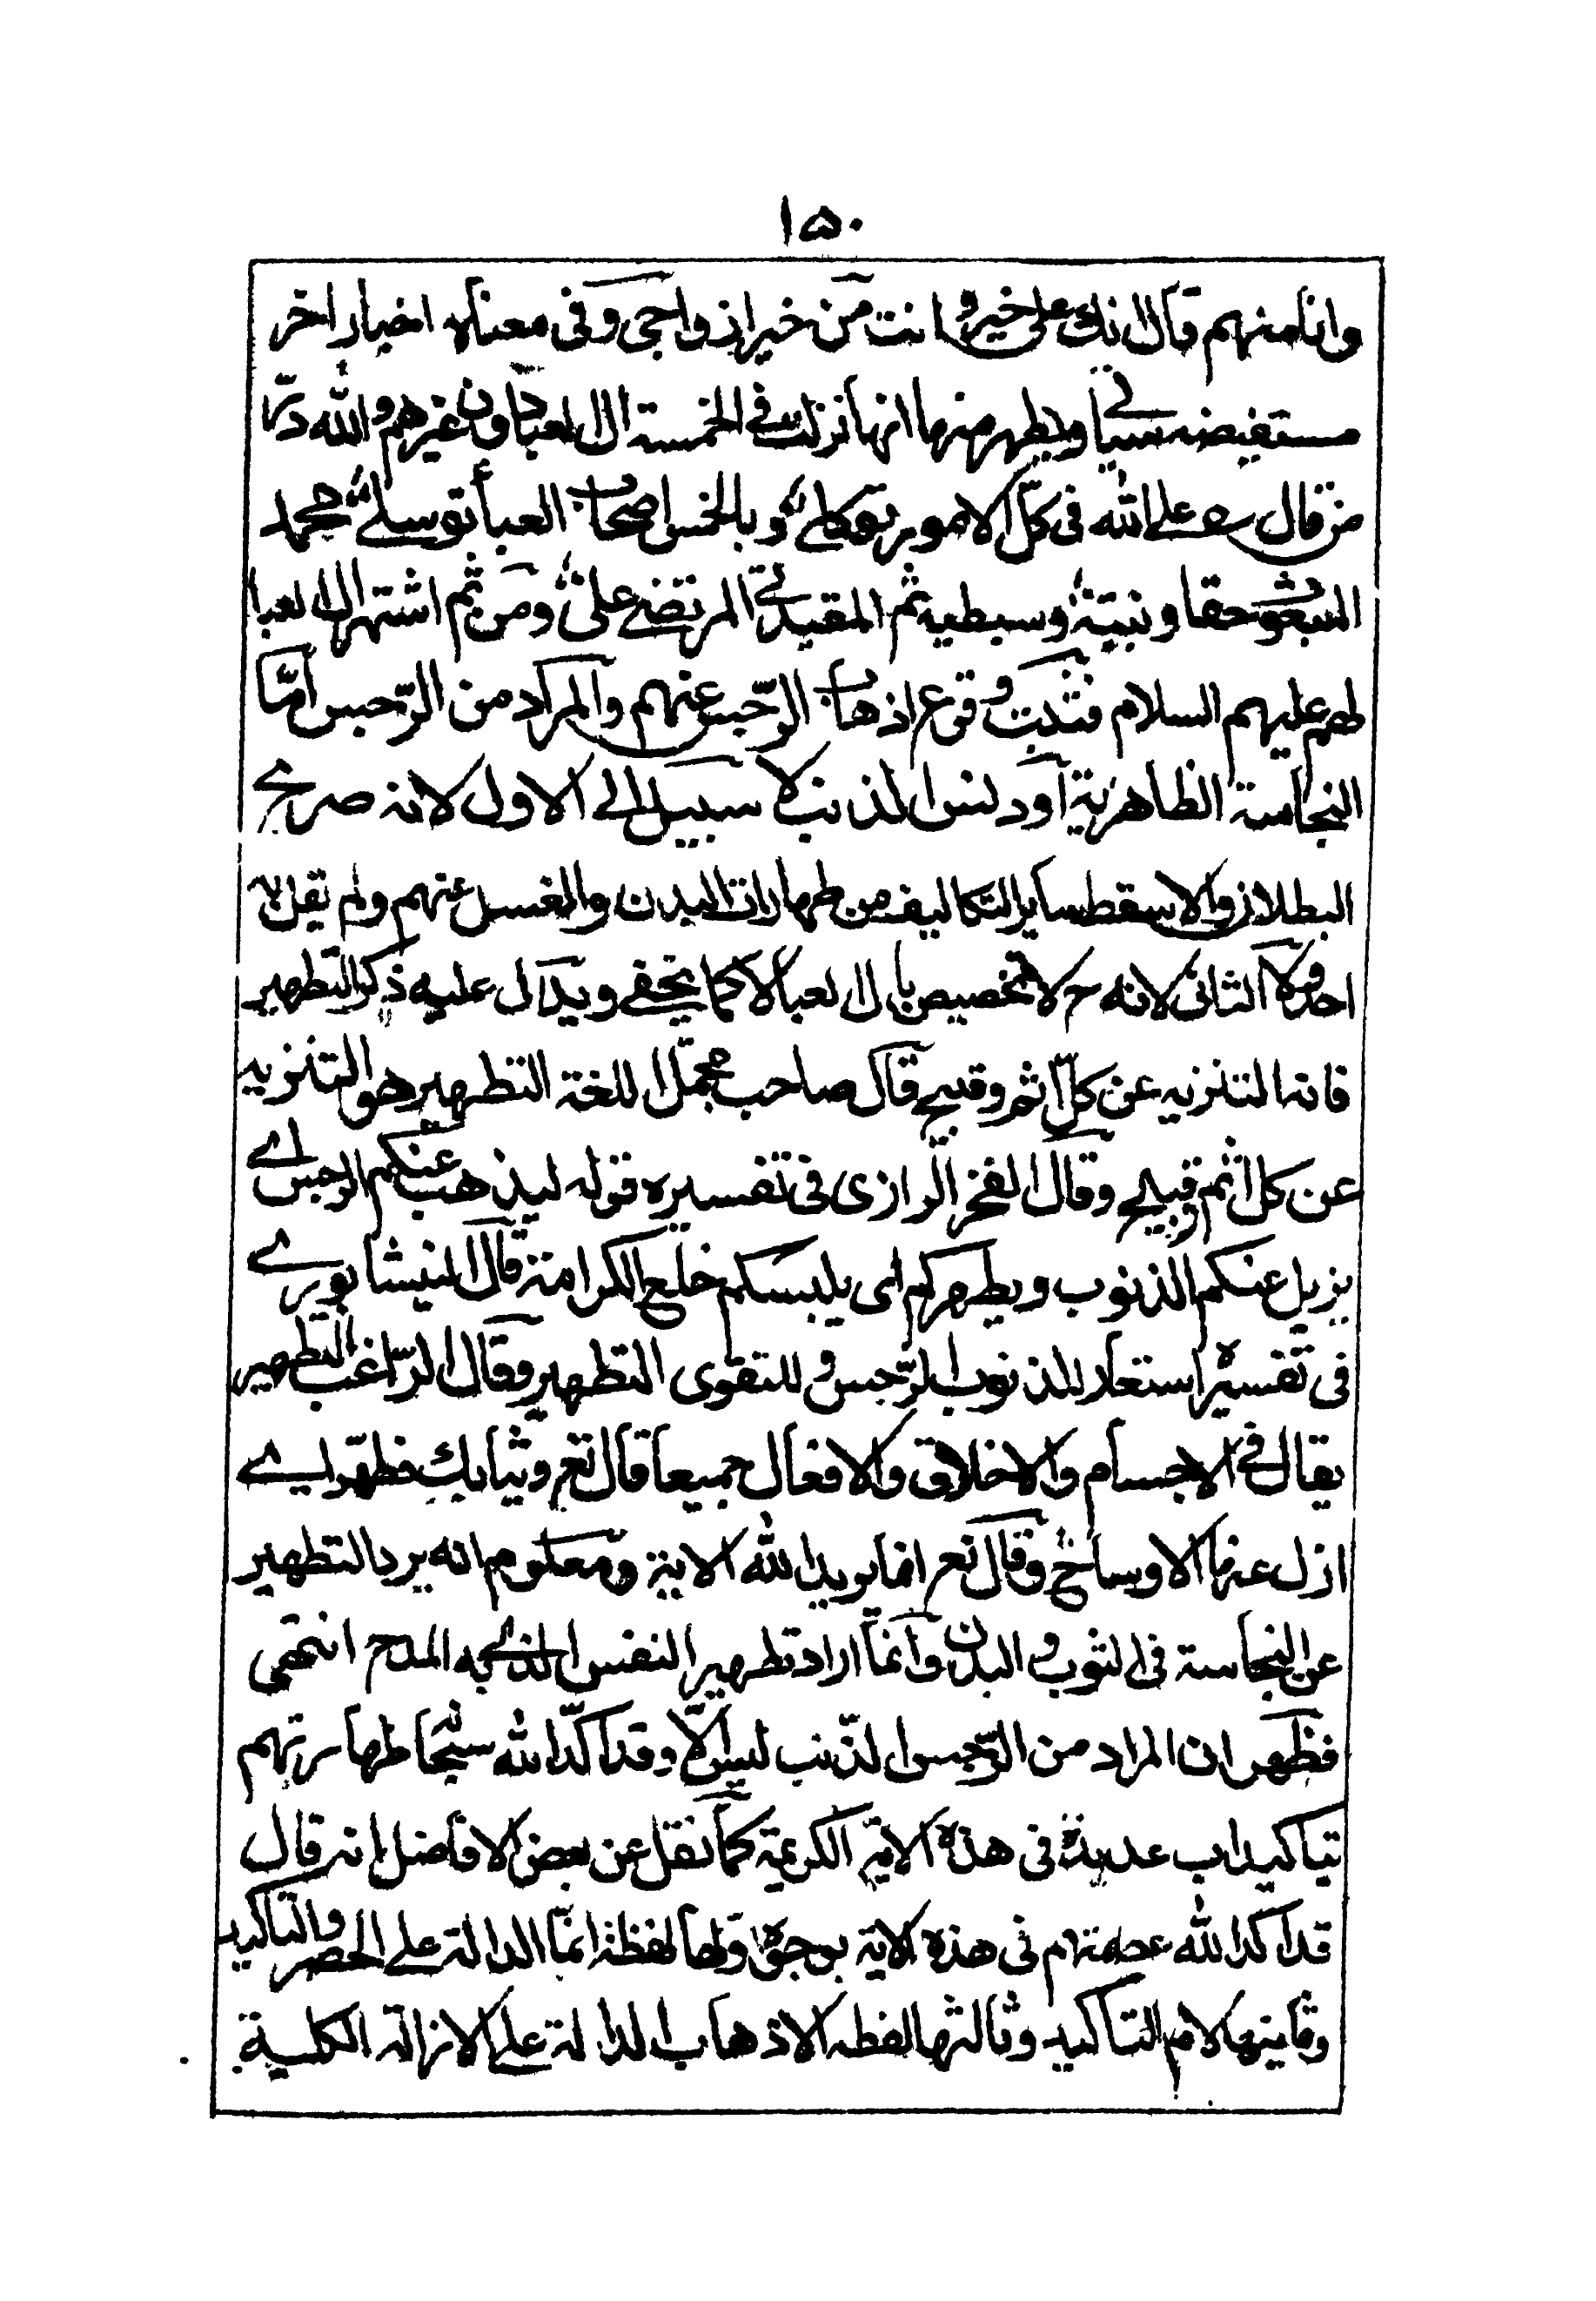 ١٥٠
وانا منهم قال انك على خير وانت من خير ازواجى وفى معناه اخبار اخر
مستفيضه سياتي ويظهر منها انها نزلت في الخمسة ال العبا دون غيرهم ولله در
من قال على الله فى كل الامور توكلى وبالخمس اصحاب العبا توسلى محمد
المبعوث حقا وبنته وسبطيه ثم المقتدى المرتضى على ومن ثم اشتهر ال العبا
طهر عليهم السلام فثبت وقوع اذهاب الرجس عنهم والمراد من الرجس اما
النجاسة الظاهرية او دنس الذنب لا سبيل الى الاول لانه صريح
البطلان والا سقط ساير التكاليف من طهارات البدن والغسل عنهم ولم يقل به
احد ولا الثانى لانه ح لا تخصيص بال العبا كما لا يخفى ويدل عليه ذكر التطهير
فانه التنزيه عن كل اثم وقبيح قال صاحب مجمل اللغة التطهير هو التنزيه
عن كل اثم وقبيح وقال الفخر الرازى فى تفسيره قوله ليذهب عنكم الرجس اى
يزيل عنكم الذنوب ويطهركم اى يلبسكم خلع الكرامة قال النيشابورى
فى تفسيره استعار للذنوب الرجس وللتقوى التطهير وقال الراغب التطهير
يقال في الاجسام والاخلاق والافعال جميعا قال تع وثيابك فطهر اى
ازل عنها الاوساخ وقال تع انما يريد الله الاية ومعلوم انه لم يرد بالتطهير
عن النجاسة فى الثوب والبدن وانما اراد تطهير النفس الذى به المدح انتهى
فظهر ان المراد من الرجس الذنب ليس الا وقد اكد الله سبحانه طهارتهم
بتاكيدات عديدة فى هذه الاية الكريمة كما نقل عن بعض الافاضل انه قال
قد اكد الله عصمتهم فى هذه الاية بوجوه اولها لفظة انما الدالة على الحصر والتاكيد
وثانيها لام التاكيد وثالثها لفظه الاذهاب الدالة على الازالة الكلية